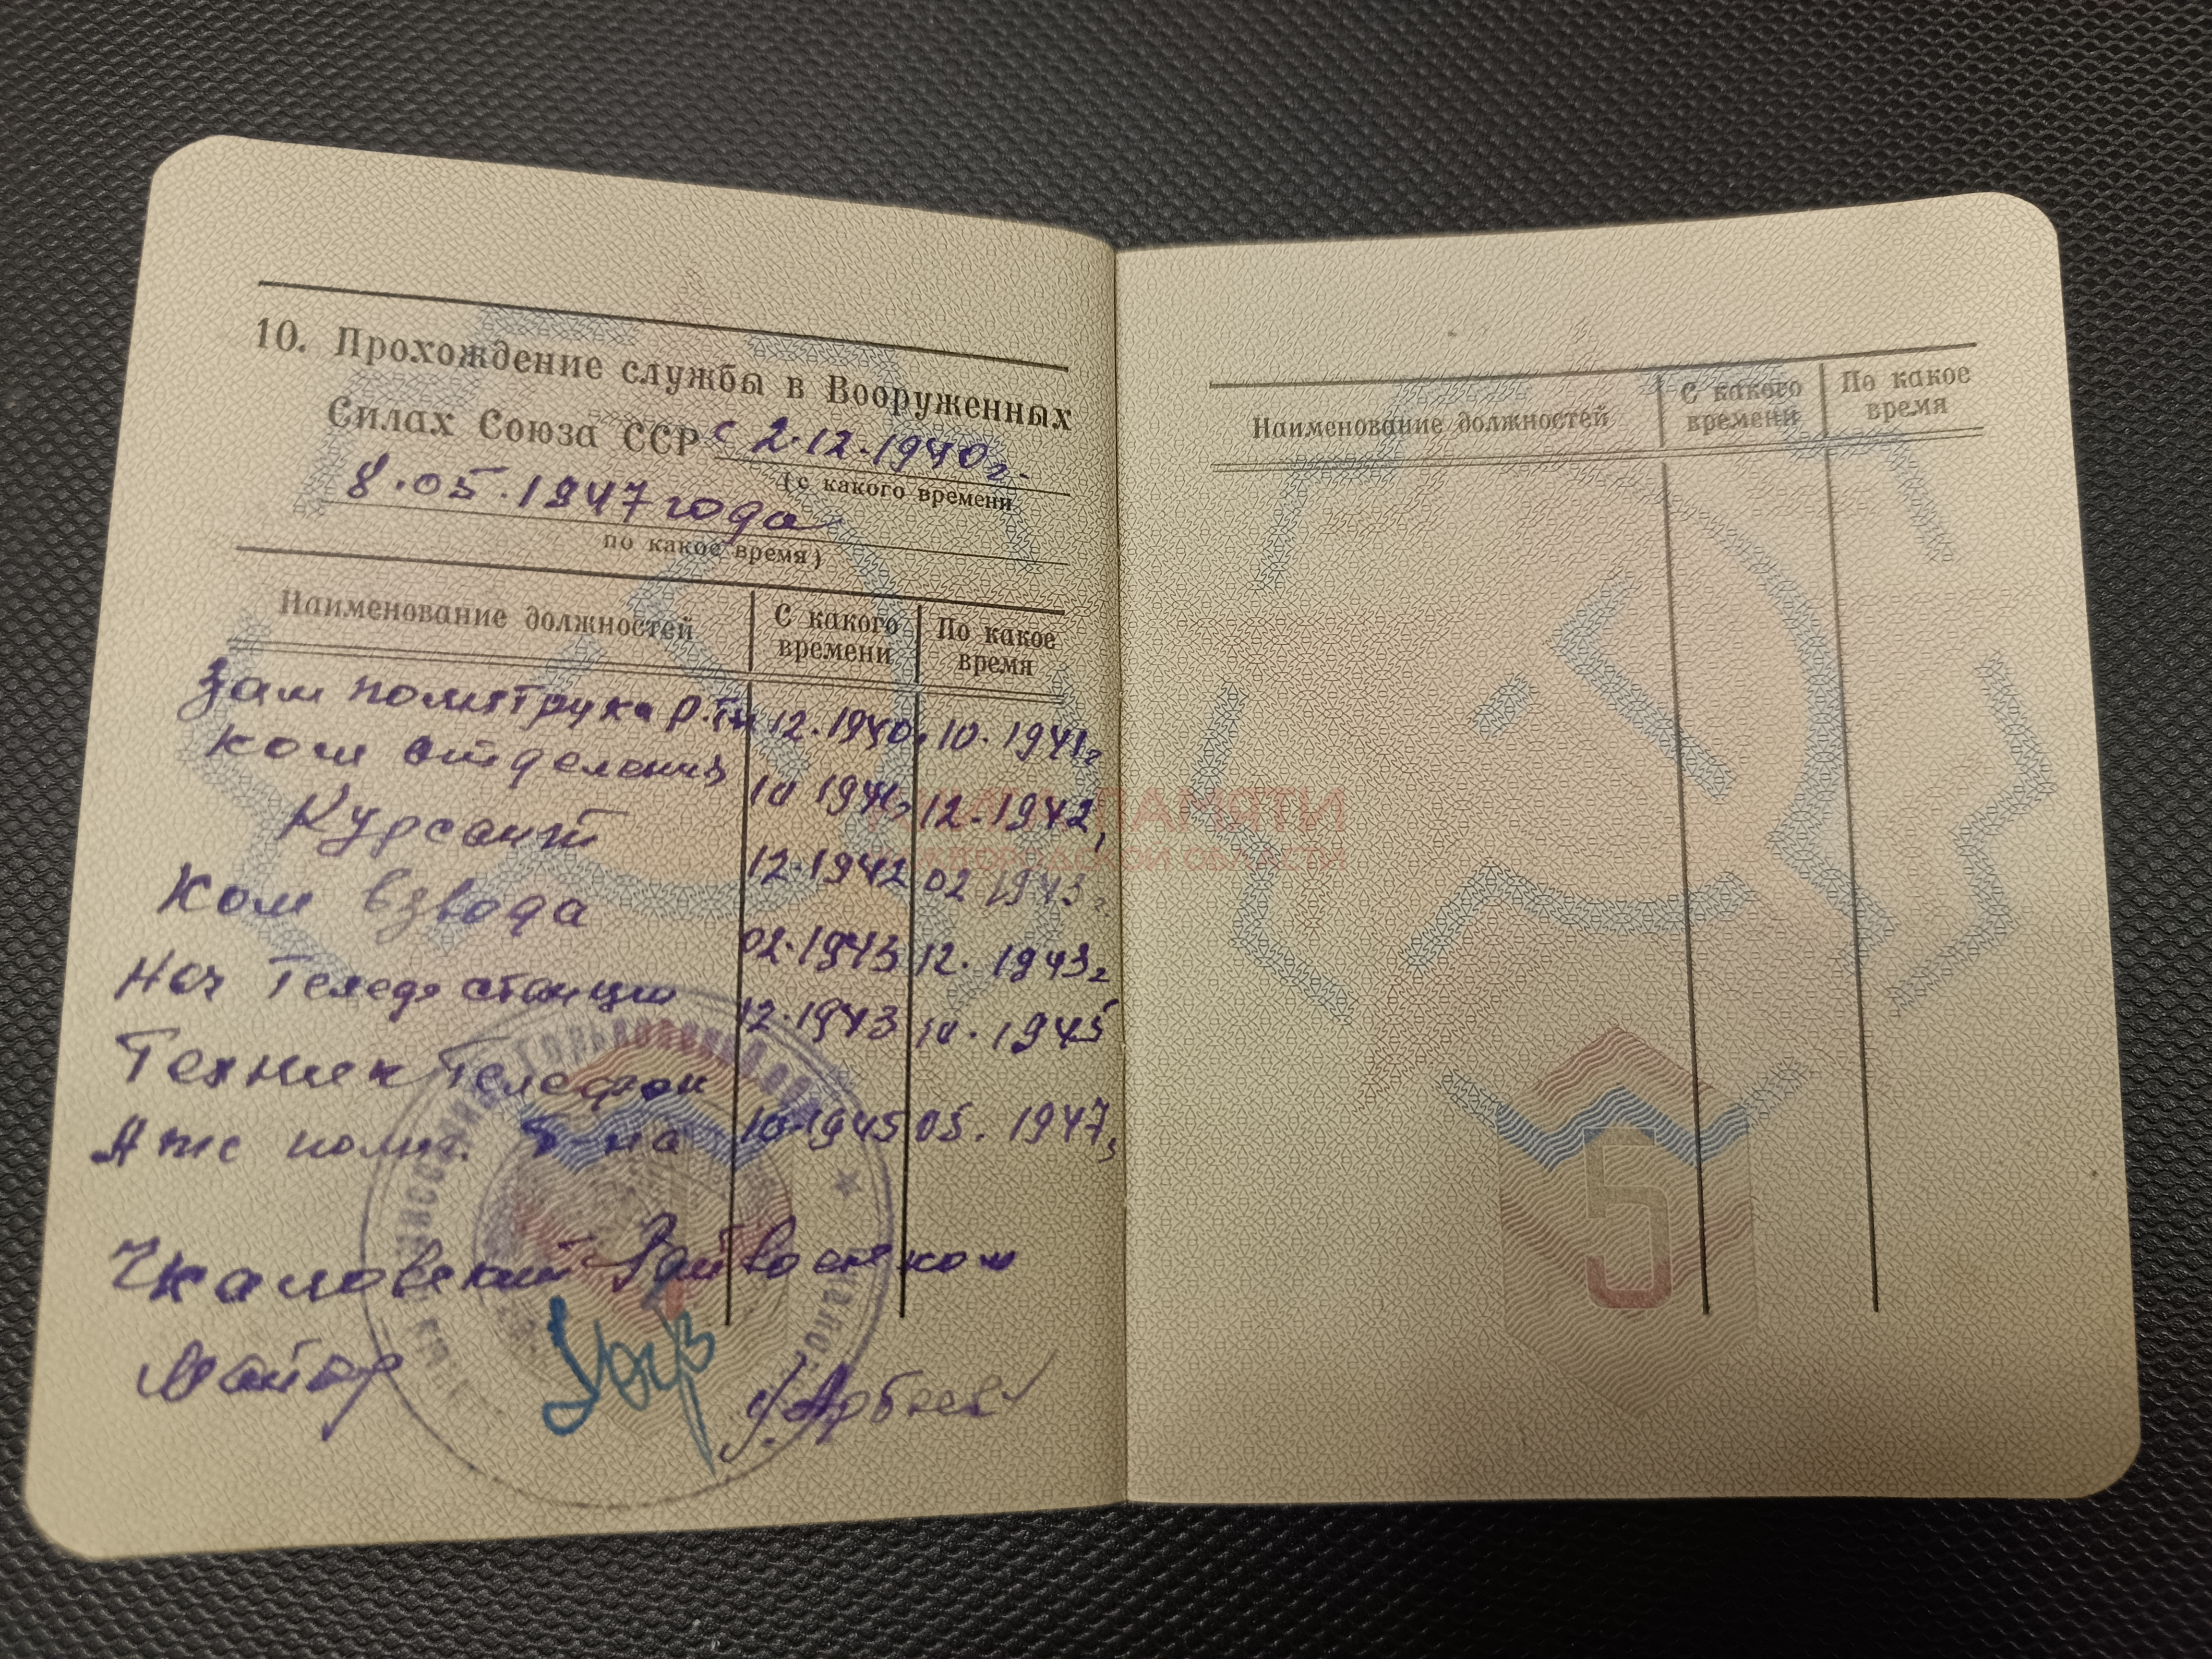 10. Прохождение службы в Вооруженных
Силах Союза ССР с 2.12.1940г.
(с какого времени
8.05.1947 года
по какое время)
Наименование должностей С какого времени По какое время
Зам политрука 12.1940. 10.1941г
ком отделения 10 1941г 12.1942,
Курсант 12.1942 02 1943г
Ком взвода 02.1943 12.1943г
Нач станции 12.1943 10.1945
Техник Телефон
10.1945 05.1947г
Чкаловский Райвоенком
Майор Арбеев
Наименование должностей С какого времени По какое время
ПАМЯТИ
ОБЛАСТИ
5